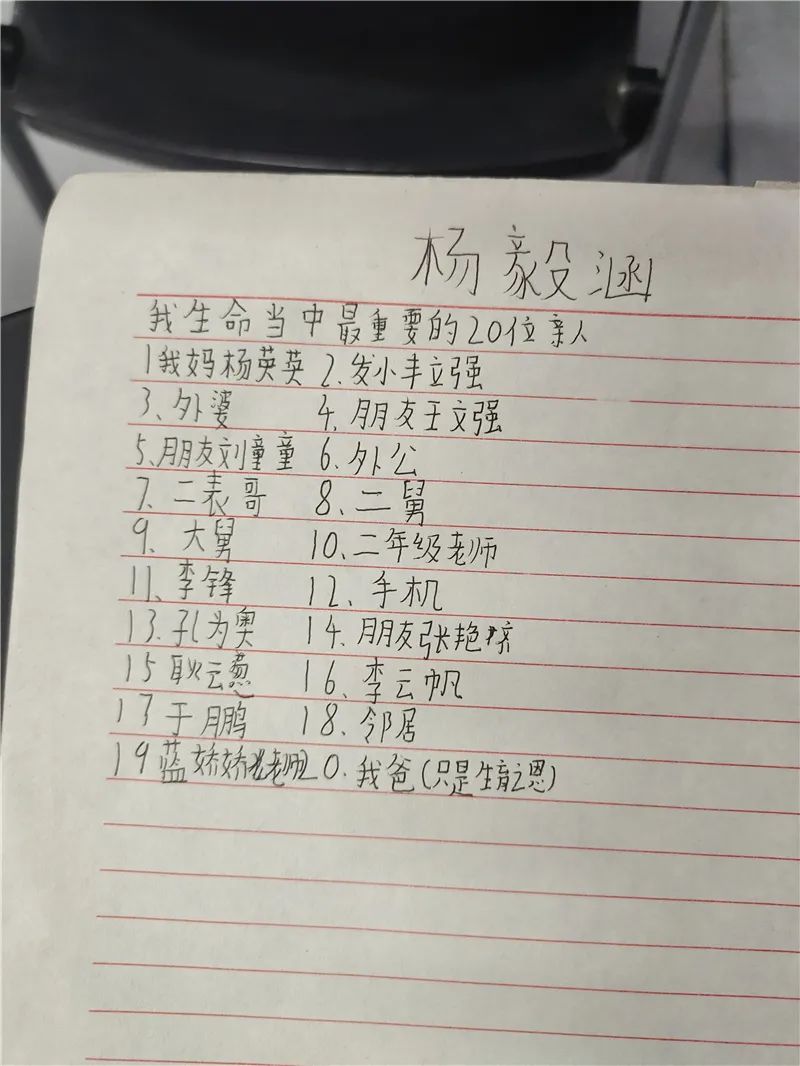 杨毅涵
我生命当中最重要的20位亲人
1我妈杨英英 2.发小丰立强
3、外婆 4.朋友王文强
5.朋友刘童童 6.外公
7.二表哥 8.二舅
9.大舅 10.二年级老师
11.李锋 12、手机
13.孔为奥 14.朋友张艳
15耿云葱 16.李云帆
17于鹏 18.邻居
19蓝娇娇老师 20.我爸(只是生育之恩)